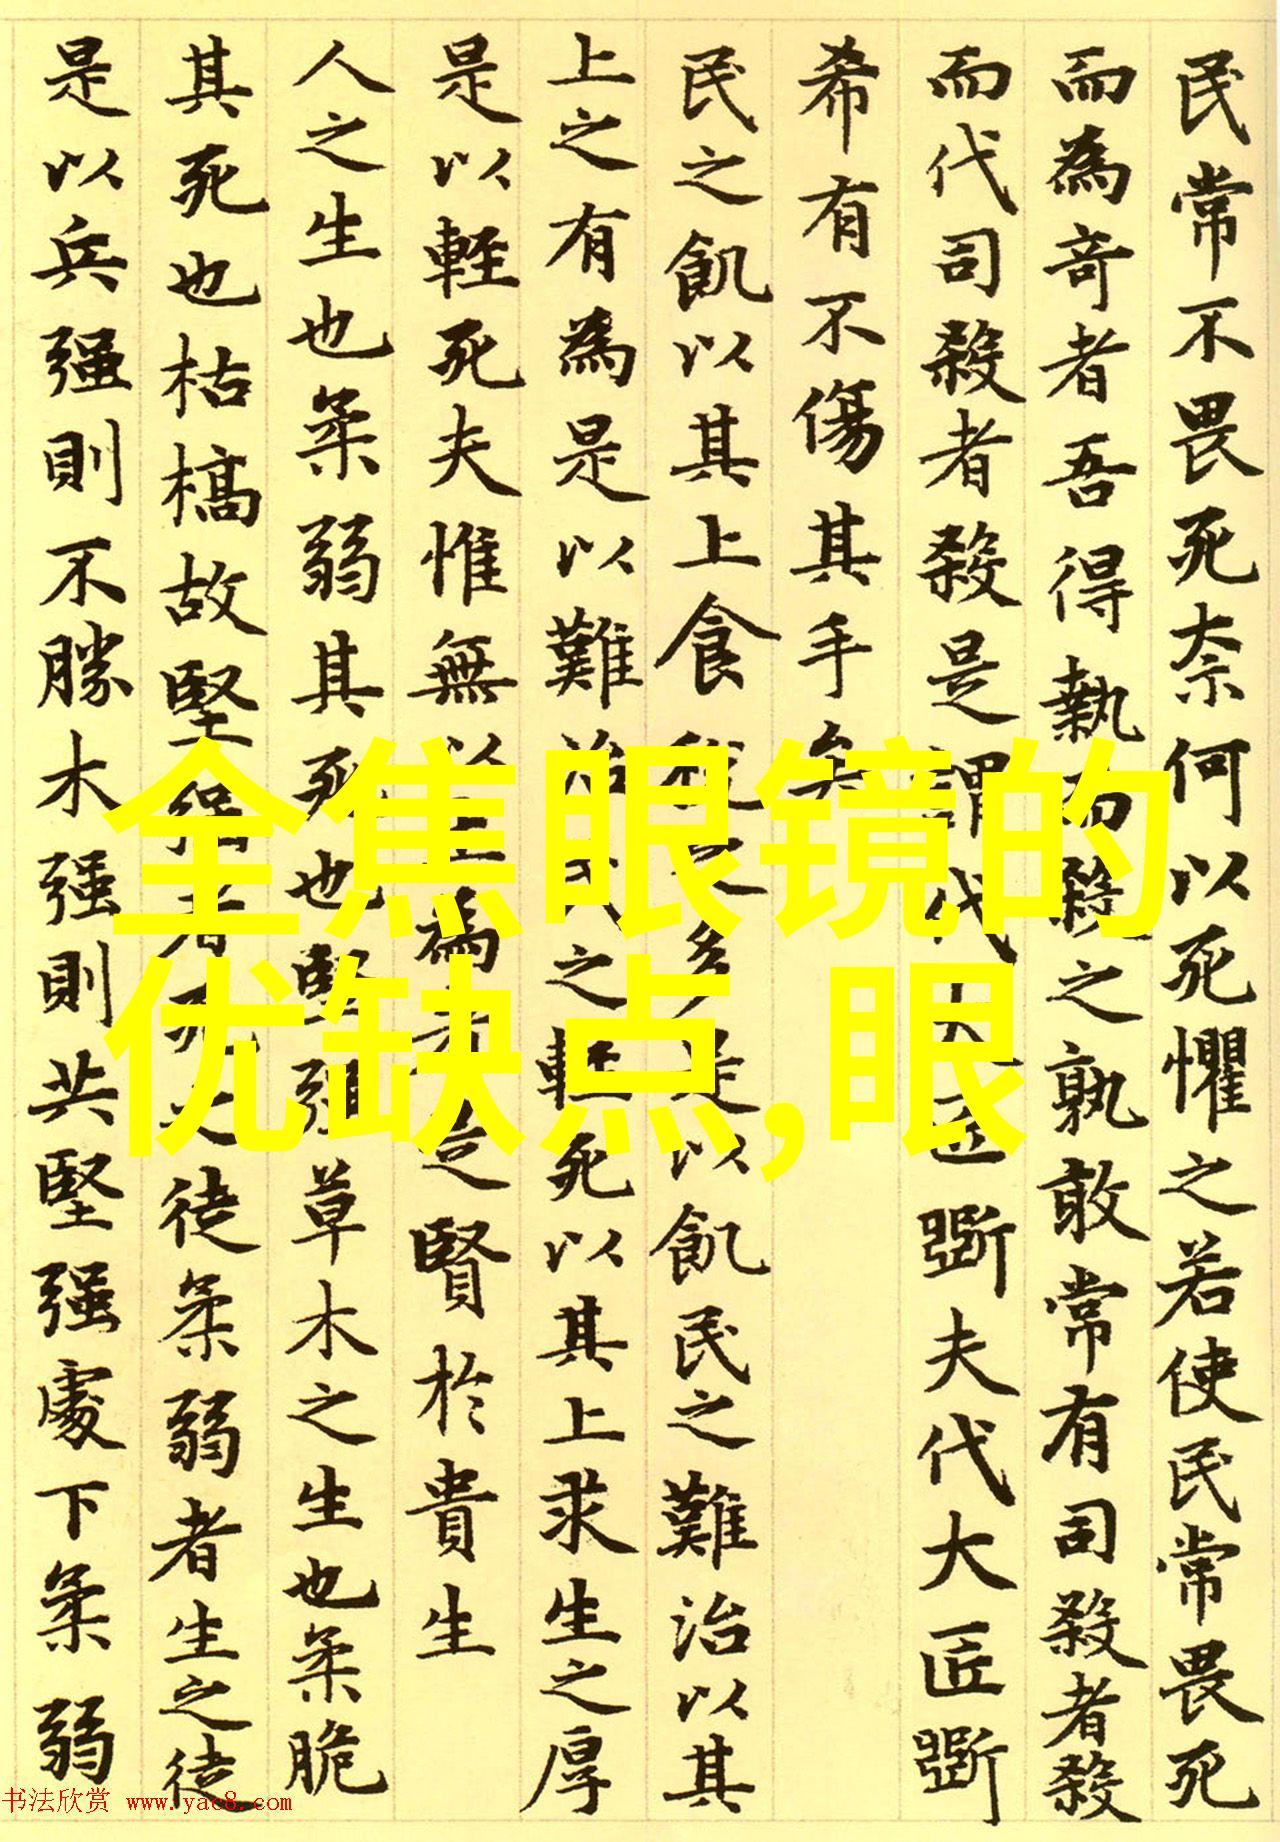 民常不畏死柰何以死懼之若使民常畏死
而為奇者吾得執而殺之孰敢常有司殺者殺
而代司殺者殺是謂代大匠斲夫代大匠斲
希有不傷其手矣
民之飢以其上食稅之多是以飢民之難治以其
上之有為是以難治民之輕死以其上求生之厚
是以輕死夫惟無以生為者是賢於貴生
人之生也柔弱其死也堅强草木之生也柔脆
其死也枯槁故堅强者死之徒柔弱者生之徒
是以兵强則不勝木强則共堅强處下柔弱
全焦眼镜的
优缺点,眼
书法欣赏 www.yac8.com